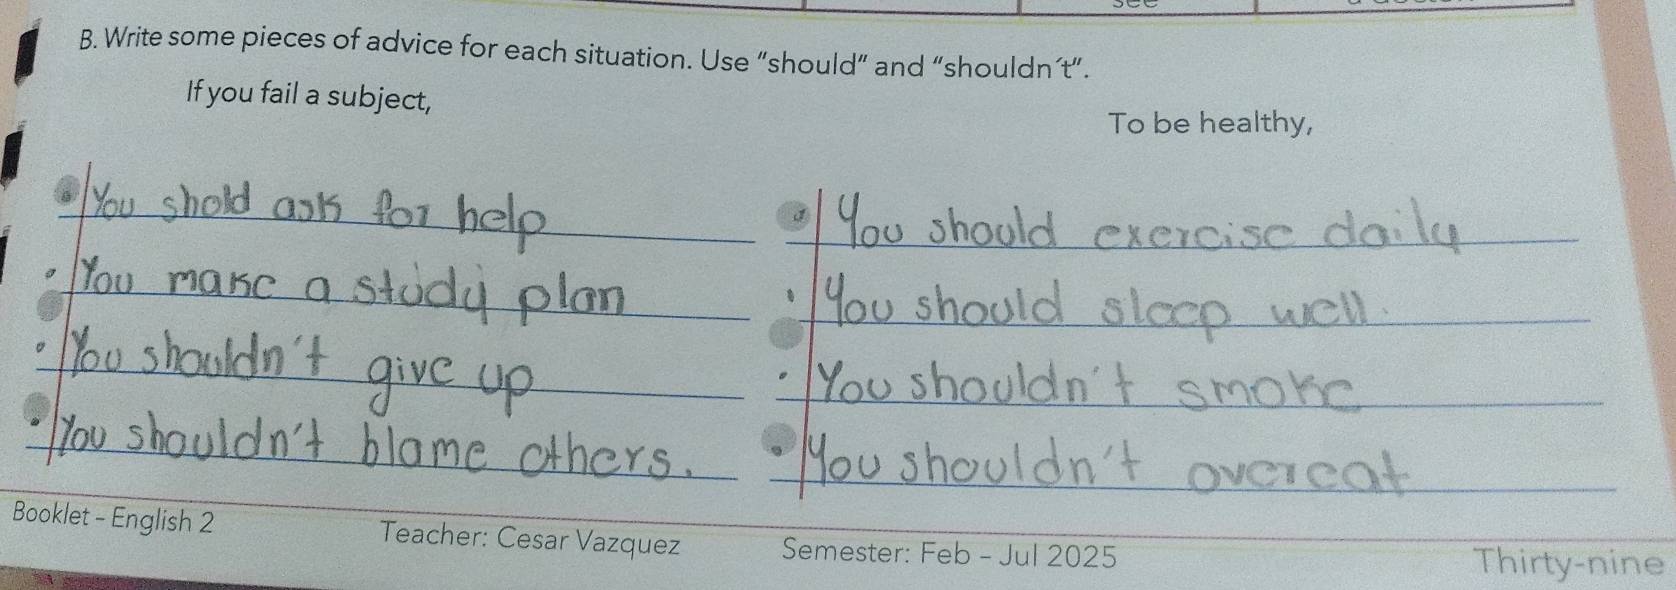 see
B. Write some pieces of advice for each situation. Use "should" and "shouldn´t".
If you fail a subject,
You shold ask for help
You make a study plan
You shouldn't give up
You shouldn't blame others.
To be healthy,
You should exercise daily
You should sleep well.
You shouldn't smoke
You shouldn't overeat
Booklet - English 2
Teacher: Cesar Vazquez
Semester: Feb - Jul 2025
Thirty-nine